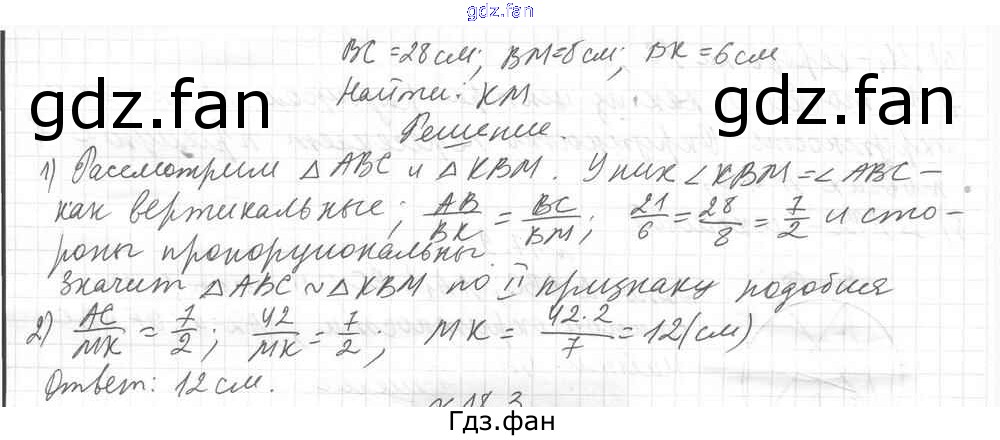 gdz.fan
BC = 28 см; BM = 8 см; BK = 6 см
gdz.fan
Найти: KM
gdz.fan
Решение.
1) Рассмотрим △ABC и △KBM. У них ∠KBM = ∠ABC –
как вертикальные; AB/BK = BC/BM; 21/6 = 28/8 = 7/2 и сто-
роны пропорциональны.
Значит △ABC ~ △KBM по II признаку подобия
2) AC/MK = 7/2; 42/MK = 7/2; MK = 42·2/7 = 12 (см)
Ответ: 12 см.
№ 18.3
Гдз.фан